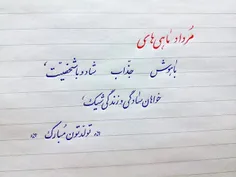 مُرداد ماهی‌های
باهوش جذّاب شاد و باشخصیّت،
خواهان سادگی و زندگی شیک،
تولدتون مُبارک